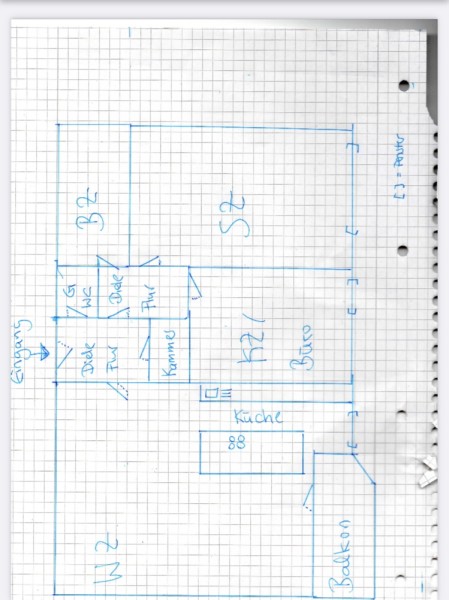 BZ
SZ
[ ] = Fenster
G
WC
Diele
Flur
Eingang
Diele
Flur
Kammer
KZ /
Büro
Küche
WZ
Balkon